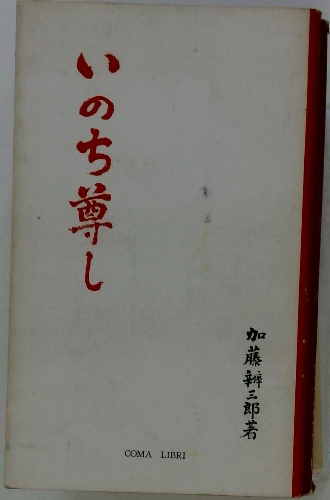 いのち尊し
加藤辨三郎著
COMA LIBRI